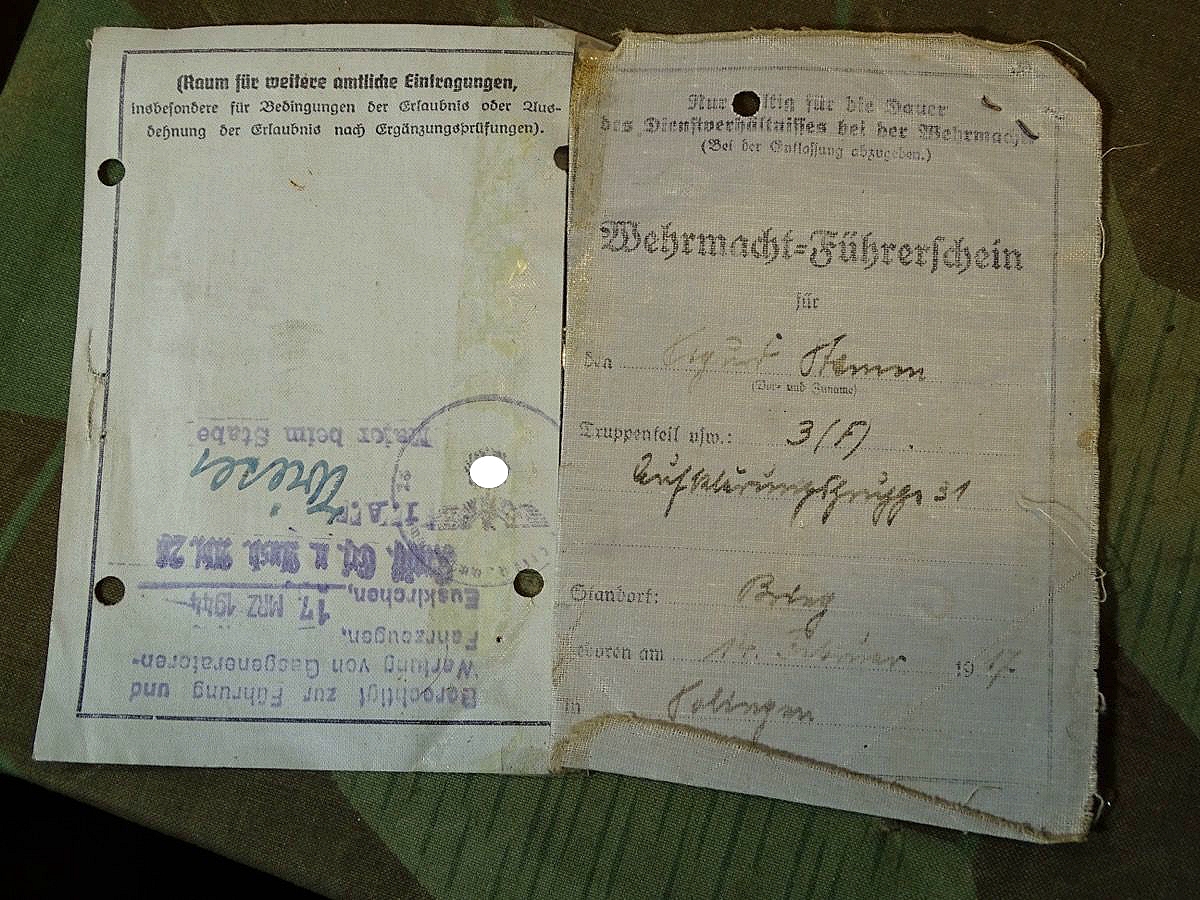 (Raum für weitere amtliche Eintragungen,
insbesondere für Bedingungen der Erlaubnis oder Aus-
dehnung der Erlaubnis nach Ergänzungsprüfungen).
Berechtigt zur Führung und
Wartung von Gasgeneratoren-
Fahrzeugen,
Euskirchen, 17. MRZ 1944
I.A.
Major beim Stabe
Nur gültig für die Dauer
des Dienstverhältnisses bei der Wehrmacht
(Bei der Entlassung abzugeben.)
Wehrmacht-Führerschein
für
den
(Vor- und Zuname)
Truppenteil usw.: 3(F)
Aufklärungsgruppe 31
Standort: Brieg
geboren am 14. Februar 1917
in Solingen